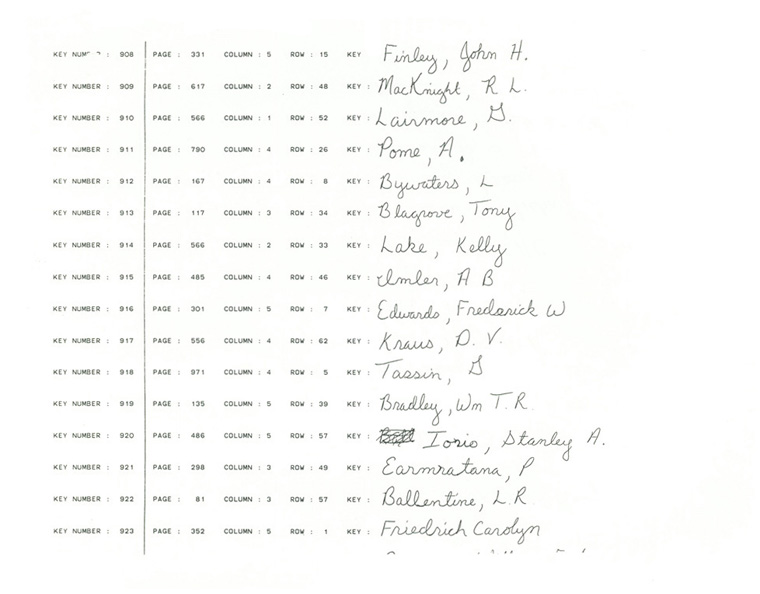 KEY NUMBER : 908 PAGE : 331 COLUMN : 5 ROW : 15 KEY Finley, John H.
KEY NUMBER : 909 PAGE : 617 COLUMN : 2 ROW : 48 KEY : MacKnight, R L.
KEY NUMBER : 910 PAGE : 566 COLUMN : 1 ROW : 52 KEY : Lairmore, G.
KEY NUMBER : 911 PAGE : 790 COLUMN : 4 ROW : 26 KEY : Pome, A.
KEY NUMBER : 912 PAGE : 167 COLUMN : 4 ROW : 8 KEY : Bywaters, L
KEY NUMBER : 913 PAGE : 117 COLUMN : 3 ROW : 34 KEY : Blagrove, Tony
KEY NUMBER : 914 PAGE : 566 COLUMN : 2 ROW : 33 KEY : Lake, Kelly
KEY NUMBER : 915 PAGE : 485 COLUMN : 4 ROW : 46 KEY : Imler, A B
KEY NUMBER : 916 PAGE : 301 COLUMN : 5 ROW : 7 KEY : Edwards, Frederick W
KEY NUMBER : 917 PAGE : 556 COLUMN : 4 ROW : 62 KEY : Kraus, D. V.
KEY NUMBER : 918 PAGE : 971 COLUMN : 4 ROW : 5 KEY : Tassin, G
KEY NUMBER : 919 PAGE : 135 COLUMN : 5 ROW : 39 KEY : Bradley, Wm T. R.
KEY NUMBER : 920 PAGE : 486 COLUMN : 5 ROW : 57 KEY : Iorio, Stanley A.
KEY NUMBER : 921 PAGE : 298 COLUMN : 3 ROW : 49 KEY : Earmratana, P
KEY NUMBER : 922 PAGE : 81 COLUMN : 3 ROW : 57 KEY : Ballentine, L. R
KEY NUMBER : 923 PAGE : 352 COLUMN : 5 ROW : 1 KEY : Friedrich Carolyn